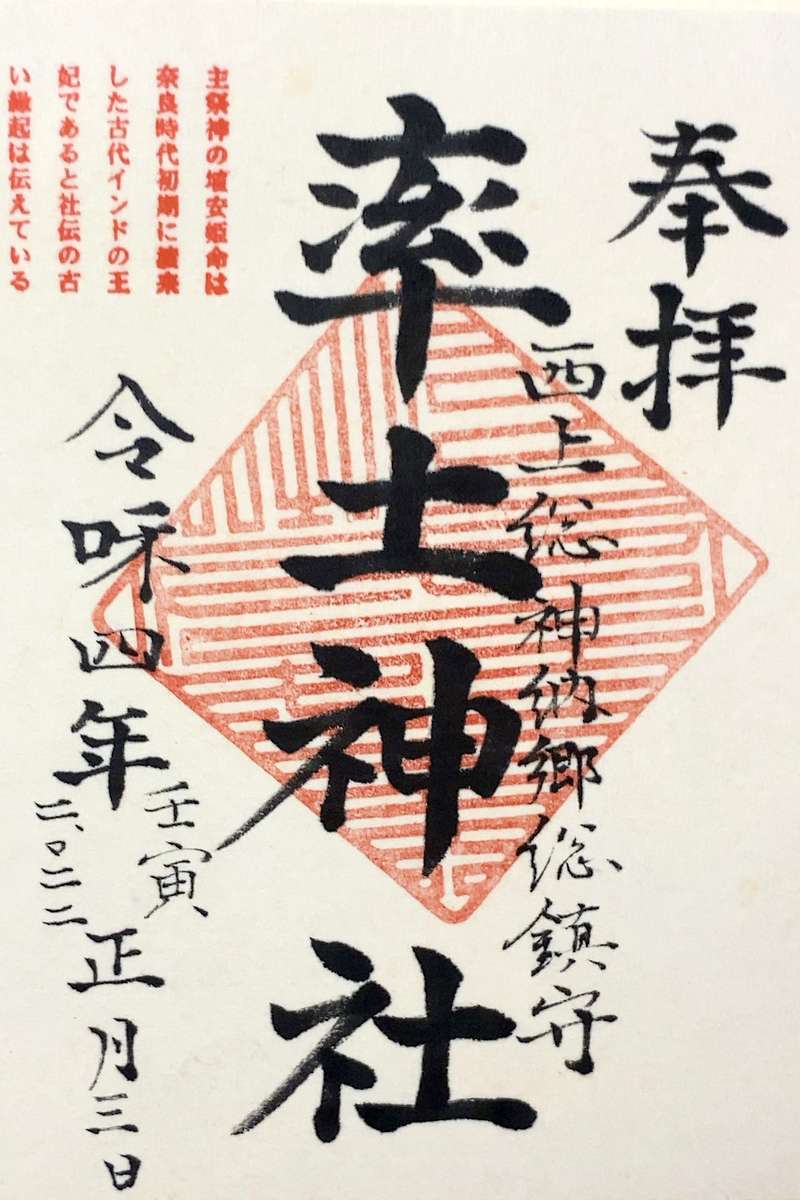 奉拝
西上総神納郷総鎮守
率土神社
令和四年
壬寅
二〇二二
正月三日
主祭神の埴安姫命は
奈良時代初期に渡来
した古代インドの王
妃であると社伝の古
い縁起は伝えている